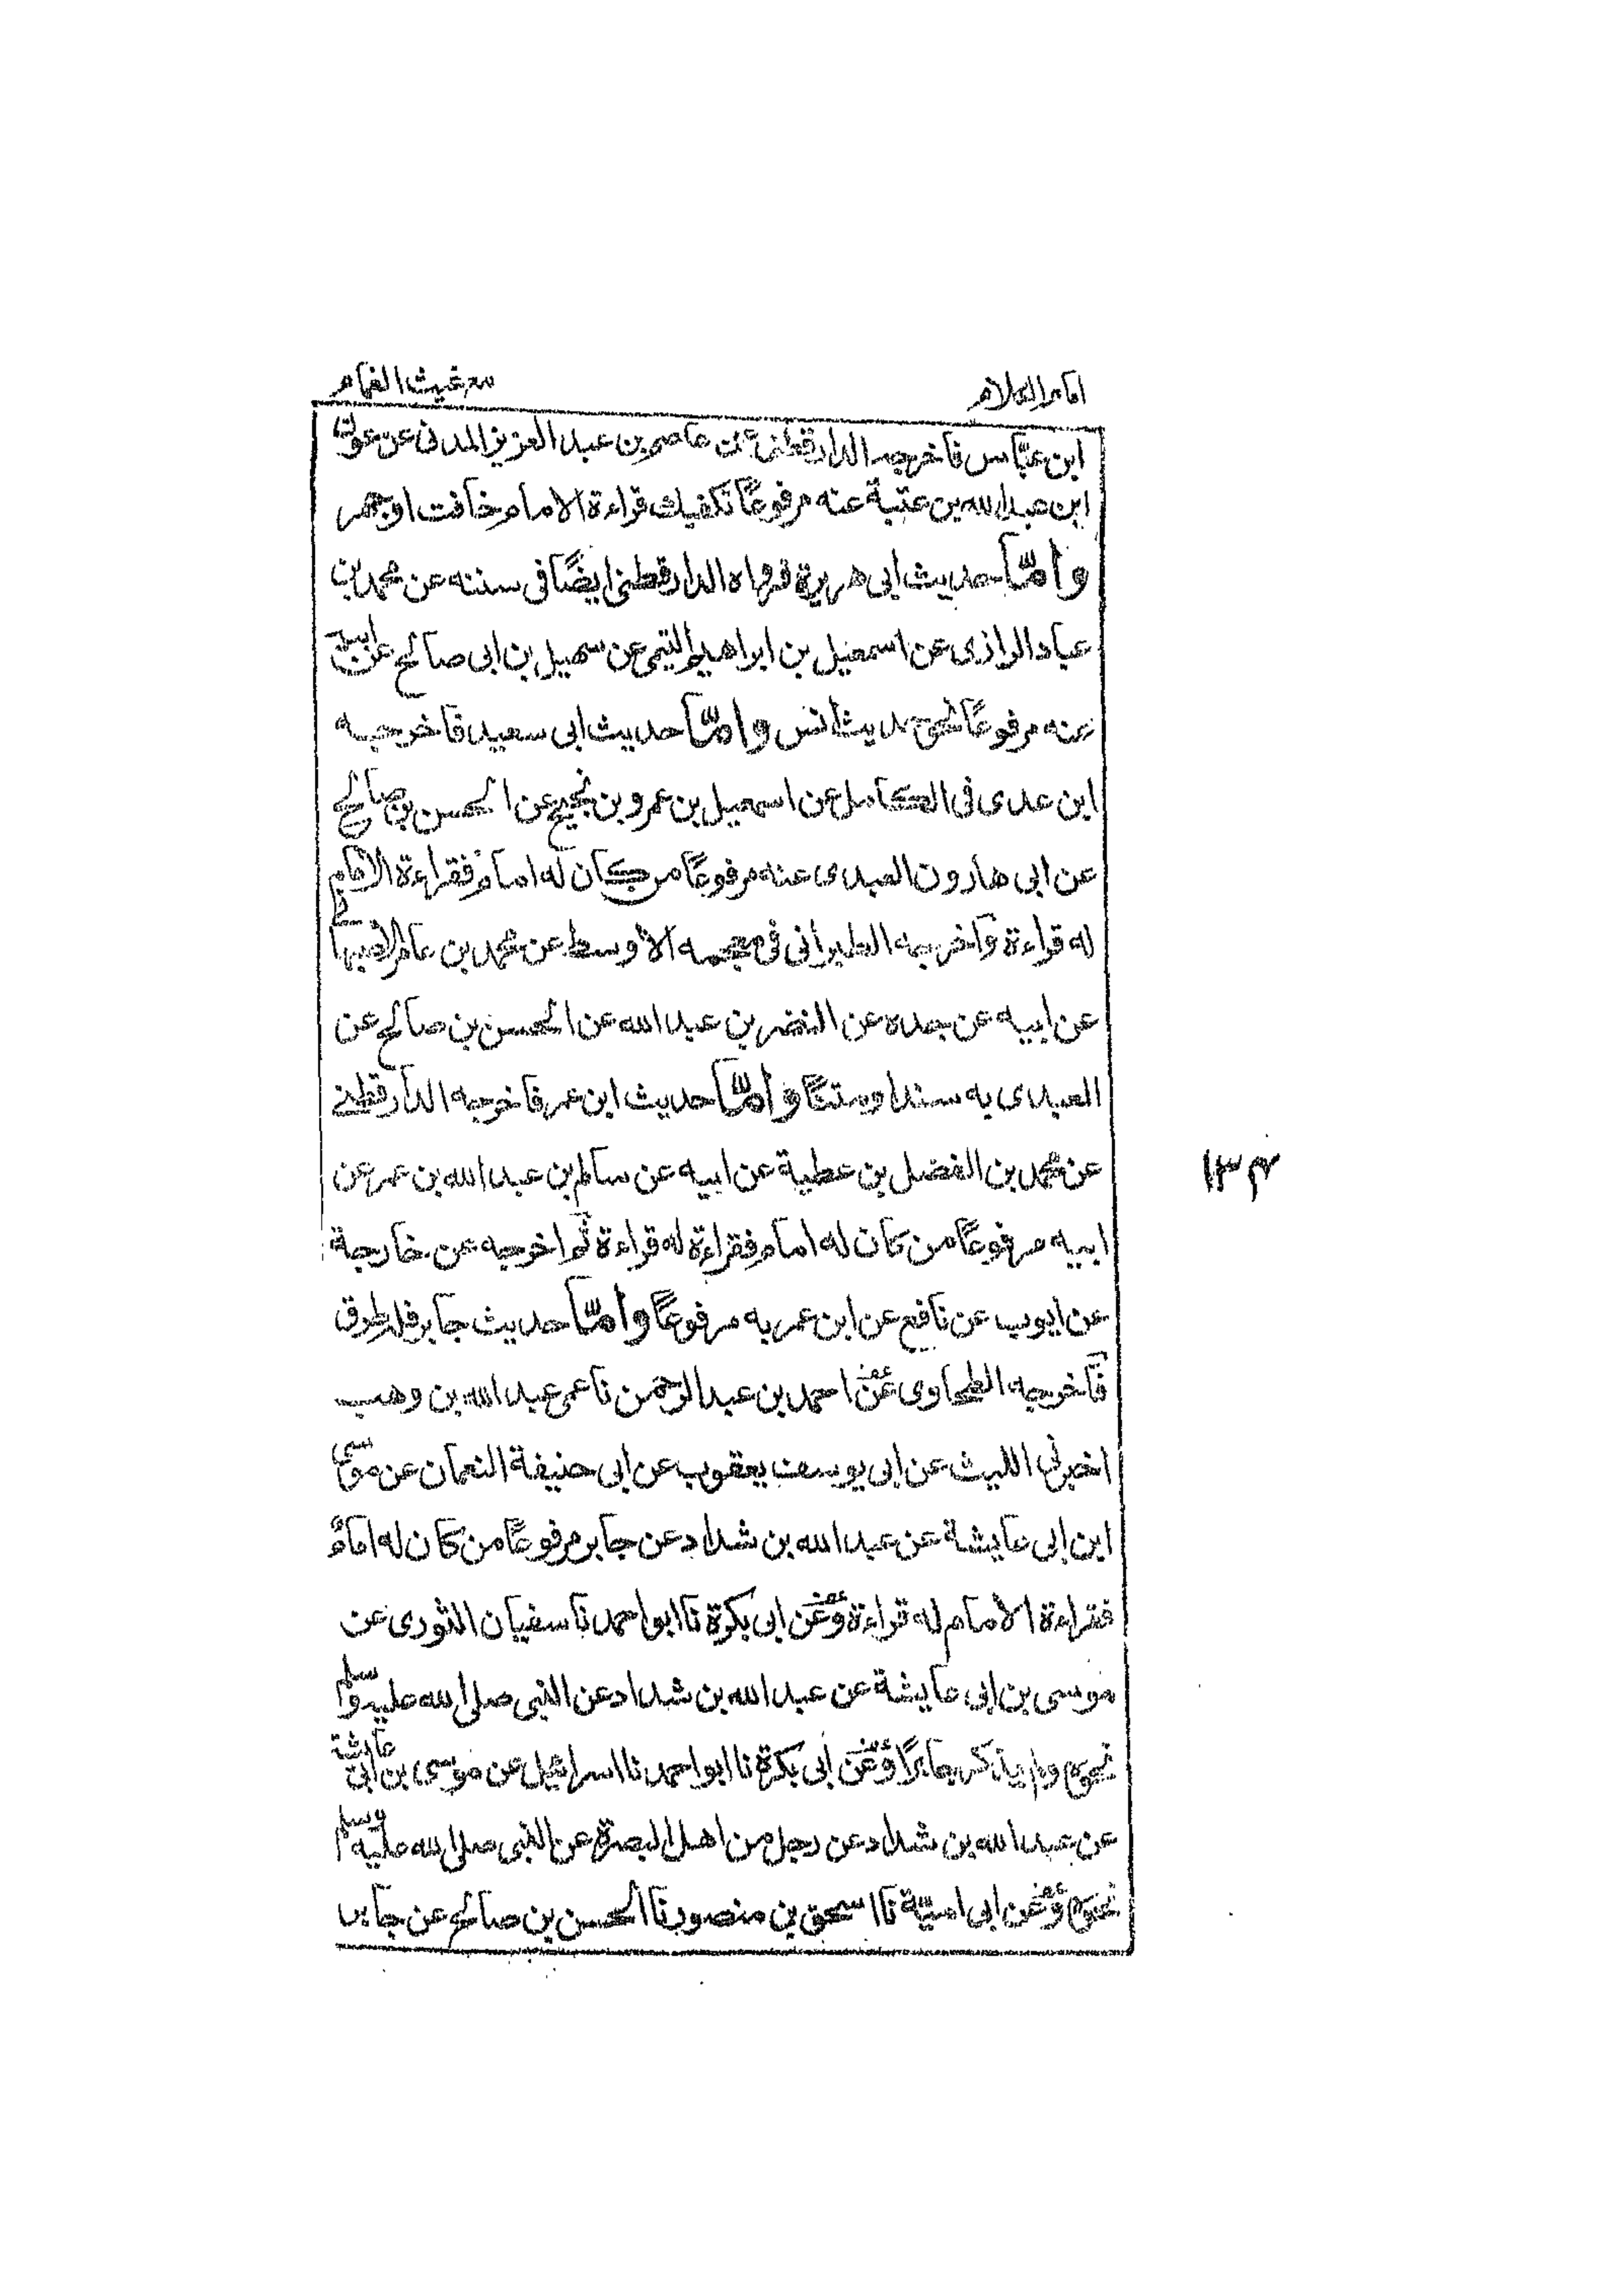 امام الكلام مع غيث الغمام
ابن عباس فاخرجه الدارقطنى عن عاصم بن عبد العزيز المدنى عن عون
ابن عبد الله بن عتبة عنه مرفوعًا تكفيك قراءة الامام خافت اوجهر
وامّا حديث ابى هريرة فرواه الدارقطنى ايضًا فى سننه عن محمد بن
عباد الرازى عن اسمعيل بن ابراهيم التيمى عن سهيل بن ابى صالح عن ابيه
عنه مرفوعًا نحو حديث انس وامّا حديث ابى سعيد فاخرجه
ابن عدى فى الكامل عن اسمعيل بن عمرو بن نجيح عن الحسن بن صالح
عن ابى هارون العبدى عنه مرفوعًا من كان له امام فقراءة الامام
له قراءة وآخرجه الطبرانى فى معجمه الاوسط عن محمد بن عامر الاصبهانى
عن ابيه عن جده عن النضر بن عبد الله عن الحسن بن صالح عن
العبدى به سندا ومتنًا وامّا حديث ابن عمر فاخرجه الدارقطنى
عن محمد بن الفضل بن عطية عن ابيه عن سالم بن عبد الله بن عمر عن
ابيه مرفوعًا من كان له امام فقراءة له قراءة ثم اخرجه عن خارجة
عن ايوب عن نافع عن ابن عمر به مرفوعًا وامّا حديث جابر فله طرق
فآخرجه الطحاوى عن احمد بن عبد الرحمن نا عمى عبد الله بن وهب
اخبرنى الليث عن ابى يوسف يعقوب عن ابى حنيفة النعمان عن موسى
ابن ابى عايشة عن عبد الله بن شداد عن جابر مرفوعًا من كان له امام
فقراءة الامام له قراءة وعن ابى بكرة نا ابو احمد نا سفيان الثورى عن
موسى بن ابى عايشة عن عبد الله بن شداد عن النبى صلى الله عليه وسلم
نحوه ولم يذكر جابرًا وعن ابى بكرة نا ابو احمد نا اسرائيل عن موسى بن ابى عايشة
عن عبد الله بن شداد عن رجل من اهل البصرة عن النبى صلى الله عليه وسلم
نحوه وعن ابى امية نا اسحق بن منصور نا الحسن بن صالح عن جابر
١٣٤